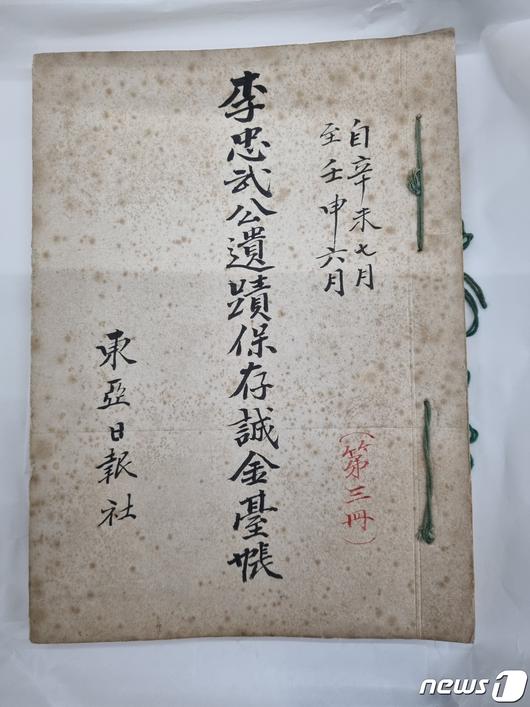 自辛未七月
至壬申六月
李忠武公遺蹟保存誠金臺帳
(第三冊)
東亞日報社
news1